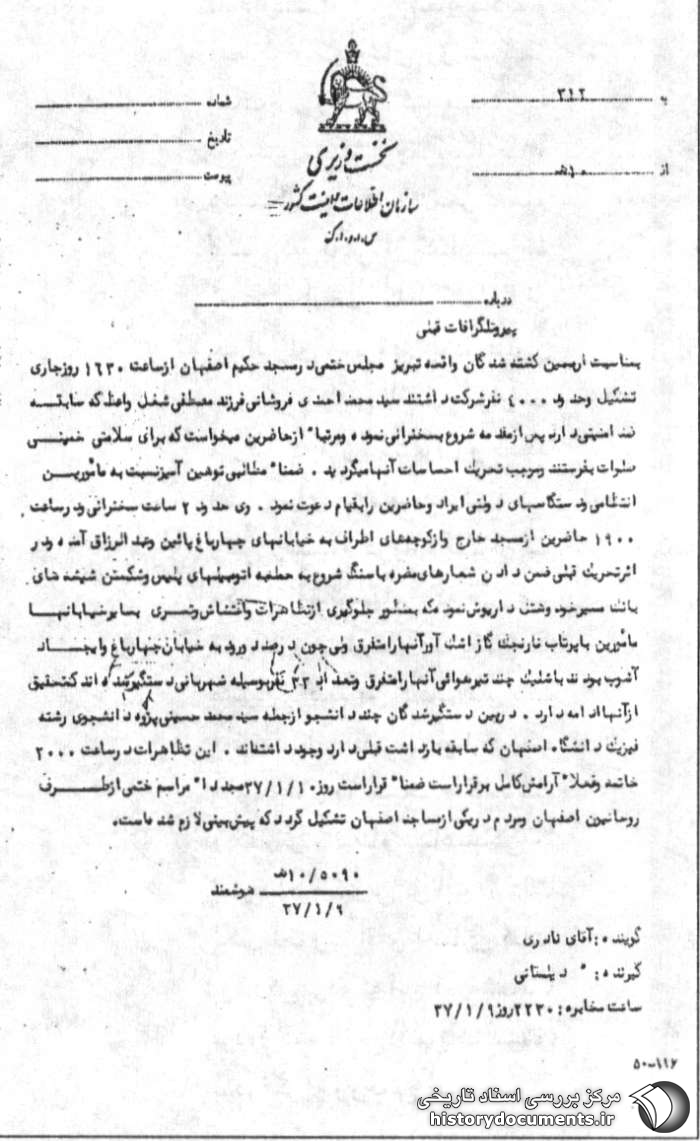 به ۳۱۲
از ۱۰هـ
شماره
تاریخ
پیوست
نخست وزیری
سازمان اطلاعات و امنیت کشور
س.ا.و.ا.ک
درباره
پیروتلگرافات قبلی
بمناسبت اربعین کشته شدگان واقعه تبریز مجلس ختمی در مسجد حکیم اصفهان ازساعت ۱۶۳۰ روزجاری
تشکیل وحدود ۴۰۰۰ نفرشرکت داشتند سید محمد احمدی فروشانی فرزند مصطفی شغل واعظ که سابقه
ضد امنیتی دارد پس ازمقدمه شروع بسخنرانی نموده ومرتباً ازحاضرین میخواست که برای سلامتی خمینی
صلوات بفرستند وموجب تحریک احساسات آنهامیگردید . ضمناً مطالبی توهین آمیزنسبت به مأمورین
انتظامی ودستگاههای دولتی ایراد وحاضرین رابقیام دعوت نمود . وی حدود ۲ ساعت سخنرانی ودرساعت
۱۹۰۰ حاضرین ازمسجد خارج وازکوچه‌های اطراف به خیابانهای چهارباغ پائین وعبدالرزاق آمده ودر
اثرتحریک قبلی ضمن دادن شعارهای مضره باسنگ شروع به حمله اتومبیلهای پلیس وشکستن شیشه های
بانک مسیرخود وهتل داریوش نمودند که بمنظور جلوگیری ازتظاهرات واغتشاش وتسری بسایرخیابانها
مأمورین باپرتاب نارنجک گاز اشک آورآنهارامتفرق ولی چون درصدد ورود به خیابان چهارباغ وایجاد
آشوب بودند باشلیک چند تیرهوائی آنهارامتفرق وتعداد ۳۳ نفربوسیله شهربانی دستگیرشده اند که تحقیق
ازآنهاادامه دارد . دربین دستگیرشدگان چند دانشجو ازجمله سید محمد حسینی پژوه دانشجوی رشته
فیزیک دانشگاه اصفهان که سابقه بازداشت قبلی دارد وجود داشته‌اند . این تظاهرات درساعت ۲۰۰۰
خاتمه وفعلاً آرامش کامل برقراراست ضمناً قراراست روز ۳۷/۱/۱۰ مجدداً مراسم ختمی ازطرف
روحانیون اصفهان ومردم دریکی ازمساجد اصفهان تشکیل گردد که پیش‌بینی لازم شده‌است.
۱۰/۵۰۹۰هـ
هوشمند
۳۷/۱/۹
گوینده : آقای نادری
گیرنده : " دبستانی
ساعت مخابره : ۲۲۳۰ روز ۳۷/۱/۹
۵۰-۱۱۶
مرکز بررسی اسناد تاریخی
historydocuments.ir